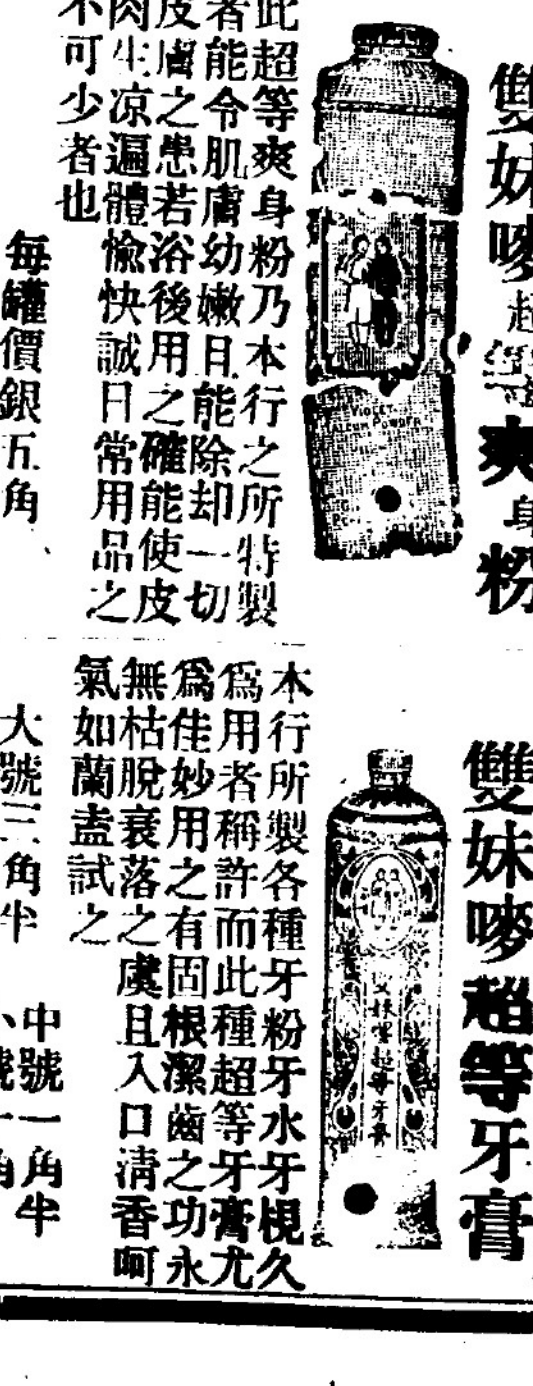 雙妹嘜超等爽身粉
VIOLET
TALCUM POWDER
此超等爽身粉乃本行之所特製
者能令肌膚幼嫩且能除却一切
皮膚之患若浴後用之確能使皮
肉生凉遍體愉快誠日常用品之
不可少者也
每罐價銀五角
雙妹嘜超等牙膏
雙妹嘜超等牙膏
本行所製各種牙粉牙水牙梘久
爲用者稱許而此種超等牙膏尤
爲佳妙用之有固根潔齒之功永
無枯脫衰落之虞且入口清香呵
氣如蘭盍試之
大號三角半
中號一角半